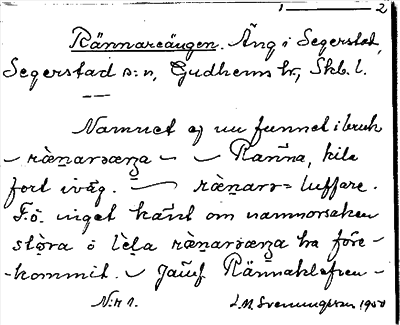 1 — 2
Rännareängen. Äng i Segerstad,
Segerstad s:n, Gudhems hr, Skb. l.
—
Namnet ej nu funnet i bruk
– ränarəæŋa – – Ränna, kila
fort iväg. – ränarə = luffare.
F.ö. inget känt om namnorsaken
støra o lèla ränarəæŋa ha före-
-kommit. – Jämf Rännaklefven –
N:r 1. L.M. Svenungsson 1950